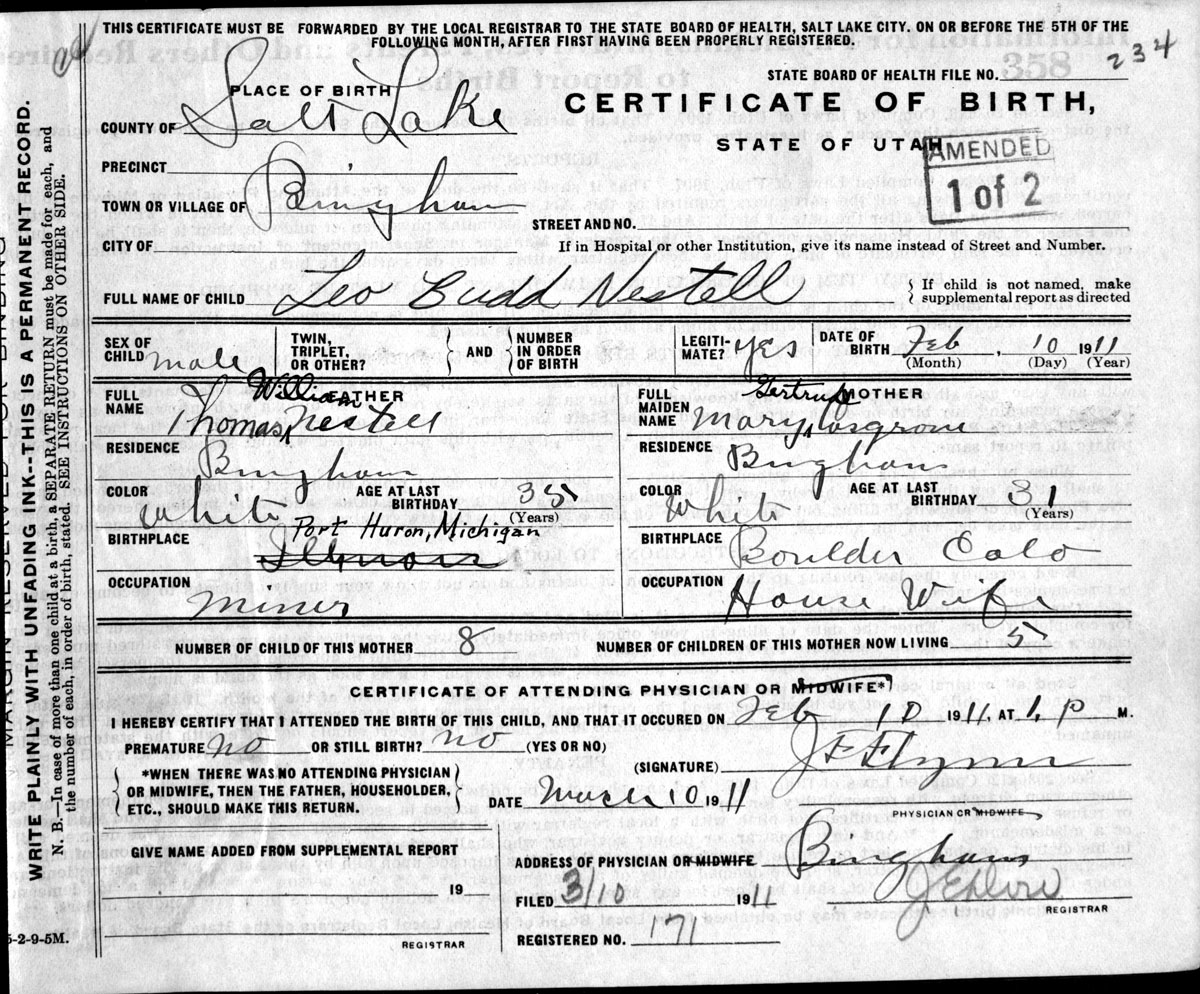 THIS CERTIFICATE MUST BE FORWARDED BY THE LOCAL REGISTRAR TO THE STATE BOARD OF HEALTH, SALT LAKE CITY. ON OR BEFORE THE 5TH OF THE
FOLLOWING MONTH, AFTER FIRST HAVING BEEN PROPERLY REGISTERED.
STATE BOARD OF HEALTH FILE NO. 358 234
PLACE OF BIRTH
CERTIFICATE OF BIRTH,
STATE OF UTAH
AMENDED
1 of 2
COUNTY OF Salt Lake
PRECINCT
TOWN OR VILLAGE OF Bingham
STREET AND NO.
CITY OF
If in Hospital or other Institution, give its name instead of Street and Number.
FULL NAME OF CHILD Leo Budd Nestell
If child is not named, make
supplemental report as directed
SEX OF CHILD male
TWIN, TRIPLET, OR OTHER?
AND
NUMBER IN ORDER OF BIRTH
LEGITI- MATE? yes
DATE OF BIRTH Feb, 10 1911
(Month) (Day) (Year)
FATHER
FULL NAME Thomas William Nestell
RESIDENCE Bingham
COLOR White
AGE AT LAST BIRTHDAY 35
(Years)
BIRTHPLACE Port Huron, Michigan
Illinois
OCCUPATION Miner
MOTHER
FULL MAIDEN NAME Mary Gertrude Cosgrove
RESIDENCE Bingham
COLOR White
AGE AT LAST BIRTHDAY 31
(Years)
BIRTHPLACE Boulder Colo
OCCUPATION House Wife
NUMBER OF CHILD OF THIS MOTHER 8
NUMBER OF CHILDREN OF THIS MOTHER NOW LIVING 5
CERTIFICATE OF ATTENDING PHYSICIAN OR MIDWIFE*
I HEREBY CERTIFY THAT I ATTENDED THE BIRTH OF THIS CHILD, AND THAT IT OCCURED ON Feb 10 1911, AT 1 P M.
PREMATURE no OR STILL BIRTH? no (YES OR NO)
*WHEN THERE WAS NO ATTENDING PHYSICIAN
OR MIDWIFE, THEN THE FATHER, HOUSEHOLDER,
ETC., SHOULD MAKE THIS RETURN.
(SIGNATURE) J F Flynn
DATE March 10 1911
PHYSICIAN OR MIDWIFE
GIVE NAME ADDED FROM SUPPLEMENTAL REPORT
19
REGISTRAR
ADDRESS OF PHYSICIAN OR MIDWIFE Bingham
FILED 3/10 1911
REGISTRAR
REGISTERED NO. 171
5-2-9-5M.
MARGIN RESERVED FOR BINDING
WRITE PLAINLY WITH UNFADING INK--THIS IS A PERMANENT RECORD.
N. B.—In case of more than one child at a birth, a SEPARATE RETURN must be made for each, and
the number of each, in order of birth, stated. SEE INSTRUCTIONS ON OTHER SIDE.